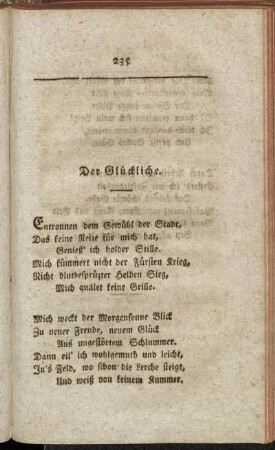 235
Der Glückliche.
Entronnen dem Gewühl der Stadt,
Das keine Reize für mich hat,
Genieß' ich holder Stille.
Mich kümmert nicht der Fürsten Krieg,
Nicht blutbesprüzter Helden Sieg,
Mich quälet keine Grille.
Mich weckt der Morgensonne Blick
Zu neuer Freude, neuem Glück
Aus ungestörtem Schlummer.
Dann eil' ich wohlgemuth und leicht,
In's Feld, wo schon die Lerche steigt,
Und weiß von keinem Kummer.